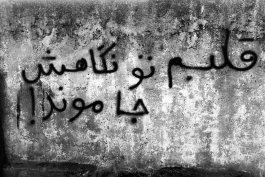 قلبم تو نگاهش
جا موند!